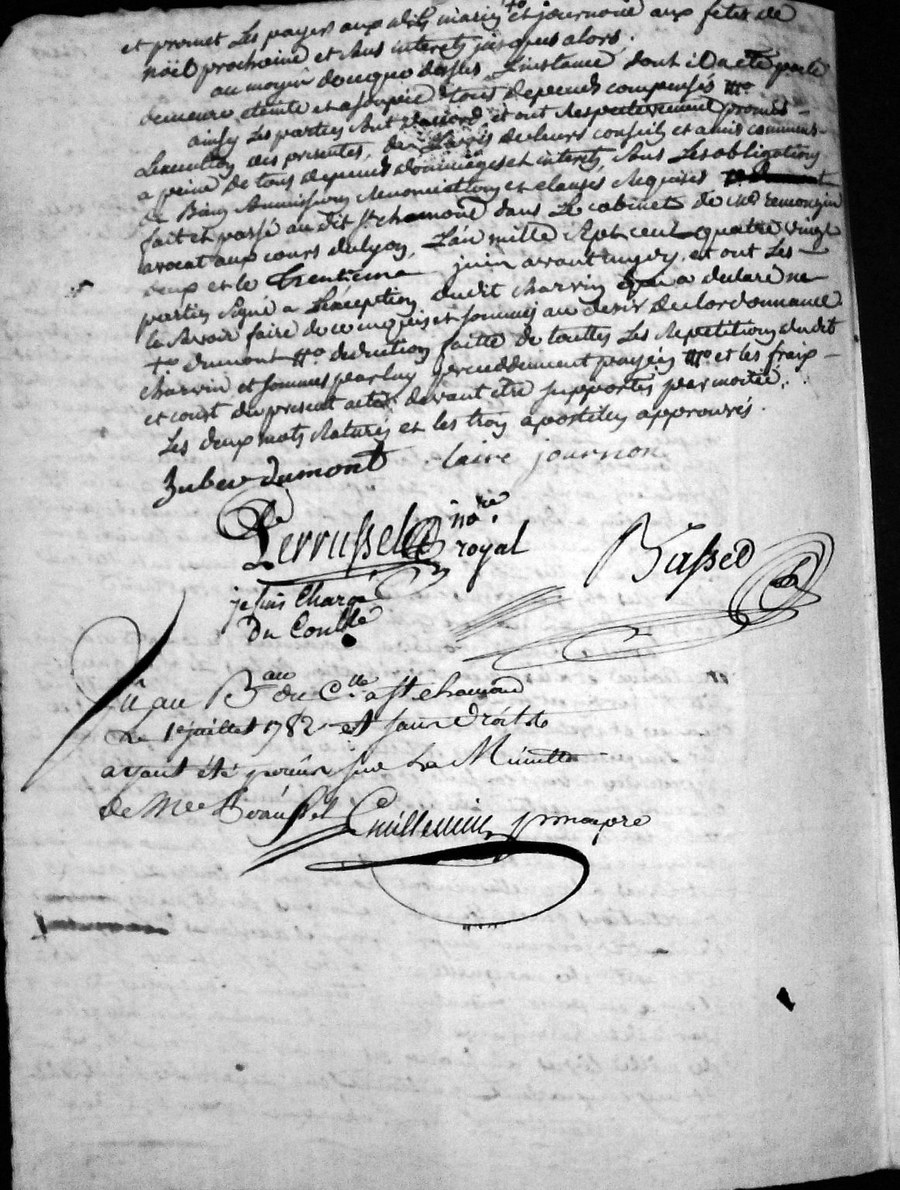 et promet les payer aux dits mariés +o et journoud aux fetes de
noël prochaine et sans interets jusques alors.
au moyen de ce que dessus L'instance dont il a été parlé
demeure eteinte et assoupie tous depends compensés #o
ainsy Les parties sont d'accord et ont respectivement promis
L'execution des presentes, de L'avis de leurs conseils et amis communs
a peine de tous depends dommages et interets, sous Les obligations
de Biens soumissions renonciations et clauses requises
fait et passé au dit st chamond dans Le cabinet de me
avocat aux cours de lyon, L'an mille sept cent quatre vingt
deux et le trentieme juin avant midy, et ont Les
parties signé a L'exception dudit charvin qui a declaré ne
le savoir faire de ce enquis et sommé au desir de l'ordonnance
+o dumont #o deduction faitte de touttes Les repetitions dudit
charvin et sommes par luy precedemment payées #o et les frais
et coust du present acte devant etre supportés par moitié.
Les deux mots raturés et les trois apostilles approuvés.
dumont claire journon
nore
royal
je suis Chargé
Du Conllé
Vû au Bau du Clle a St chamond
Le 1er juillet 1782 et sans Droit
ayant été perçus sur La Minutte
de Me